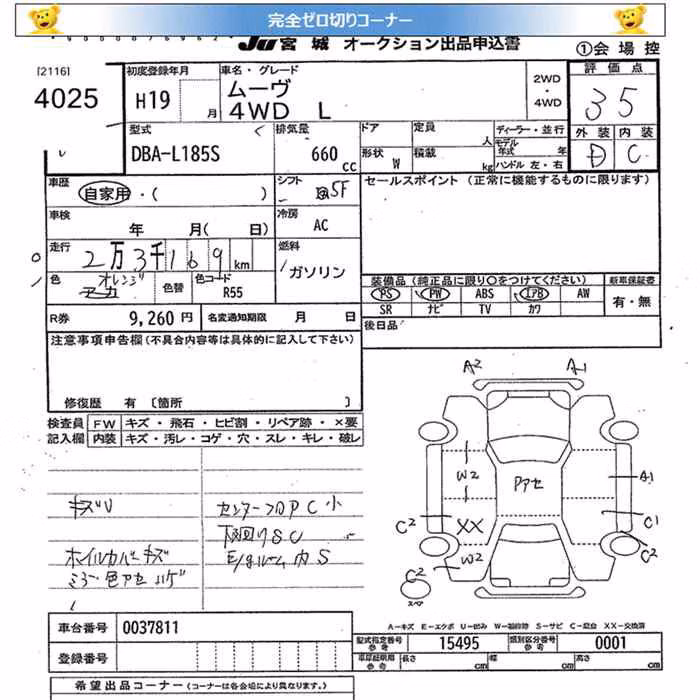 完全ゼロ切りコーナー
JU宮城 オークション出品申込書
①会場控
[2116]
4025
初度登録年月
H19 月
車名・グレード
ムーヴ
4WD L
2WD
・
4WD
評価点
3 5
外装 内装
D C
型式
DBA-L185S
排気量
660 cc
ドア
定員 人
形状 W
積載 kg
ディーラー・並行
モデル年式 年
ハンドル 左・右
車歴
自家用・( )
シフト
5F
セールスポイント (正常に機能するものに限ります)
車検
年 月( 日)
冷房
AC
走行
2万3千169 km
燃料
ガソリン
色
オレンジ
色替
色コード
R55
装備品 (純正品に限り○をつけてください)
新車保証書
PS PW ABS IAB AW
有・無
SR ナビ TV カワ
R券 9,260 円
名変通知期限 月 日
後日品
注意事項申告欄 (不具合内容等は具体的に記入して下さい)
修復歴 有 [箇所 ]
検査員記入欄
FW キズ・飛石・ヒビ割・リペア跡・×要
内装 キズ・汚レ・コゲ・穴・スレ・キレ・破レ
キズU
センターフロアC小
下回りSC
ホイルカバーキズ
E/gルーム内S
ミラー色アセ ハゲ
A2 A1
W2
アアセ
A1
XX
C2 C1
W2
C2
C2
スペア
A-キズ E-エクボ U-凹み W-補修跡 S-サビ C-腐食 XX-交換済
車台番号 0037811
登録番号
型式指定番号 参考 15495
類別区分番号 参考 0001
車両総明見 参考
長さ cm
幅 cm
高さ cm
希望出品コーナー (コーナーは各会により異なります。)